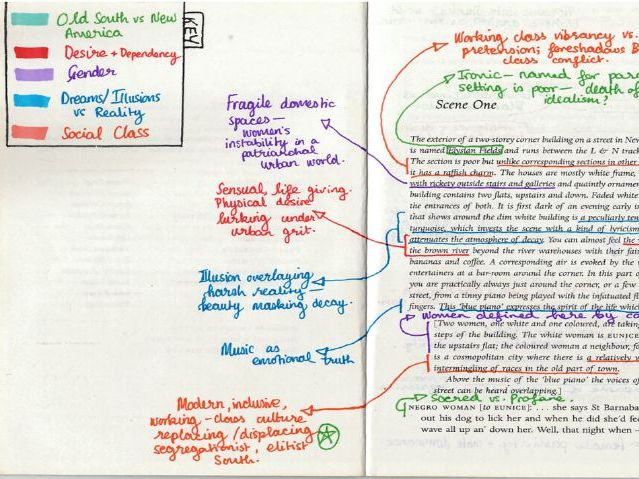 KEY
Old South vs New
America
Desire + Dependency
Gender
Dreams/Illusions
vs Reality
Social Class
Fragile domestic
spaces — women's
instability in a
patriarchal
urban world.
Sensual, life giving.
Physical desire
lurking under
urban grit.
Illusion overlaying
harsh reality —
beauty masking decay.
Music as
emotional truth
Modern, inclusive,
working-class culture
replacing/displacing
segregationist, elitist
South.
Working class vibrancy vs.
pretension; foreshadows B
class conflict.
Ironic — named for para
setting is poor — death of
idealism?
Scene One
The exterior of a two-storey corner building on a street in New
is named Elysian Fields and runs between the L & N track
The section is poor but unlike corresponding sections in other
it has a raffish charm. The houses are mostly white frame,
with rickety outside stairs and galleries and quaintly ornamen
building contains two flats, upstairs and down. Faded white
the entrances of both. It is first dark of an evening early i
that shows around the dim white building is a peculiarly ten
turquoise, which invests the scene with a kind of lyricism
attenuates the atmosphere of decay. You can almost feel the
the brown river beyond the river warehouses with their fain
bananas and coffee. A corresponding air is evoked by the
entertainers at a bar-room around the corner. In this part o
you are practically always just around the corner, or a few
street, from a tinny piano being played with the infatuated fl
fingers. This 'blue piano' expresses the spirit of the life whic
Women defined here by co
[Two women, one white and one coloured, are taking
steps of the building. The white woman is EUNICE
the upstairs flat; the coloured woman a neighbour, fo
is a cosmopolitan city where there is a relatively
intermingling of races in the old part of town.
Above the music of the 'blue piano' the voices of
street can be heard overlapping.]
Sacred vs. Profane.
NEGRO WOMAN [to EUNICE]: . . . she says St Barnaba
out his dog to lick her and when he did she'd fee
wave all up an' down her. Well, that night when —